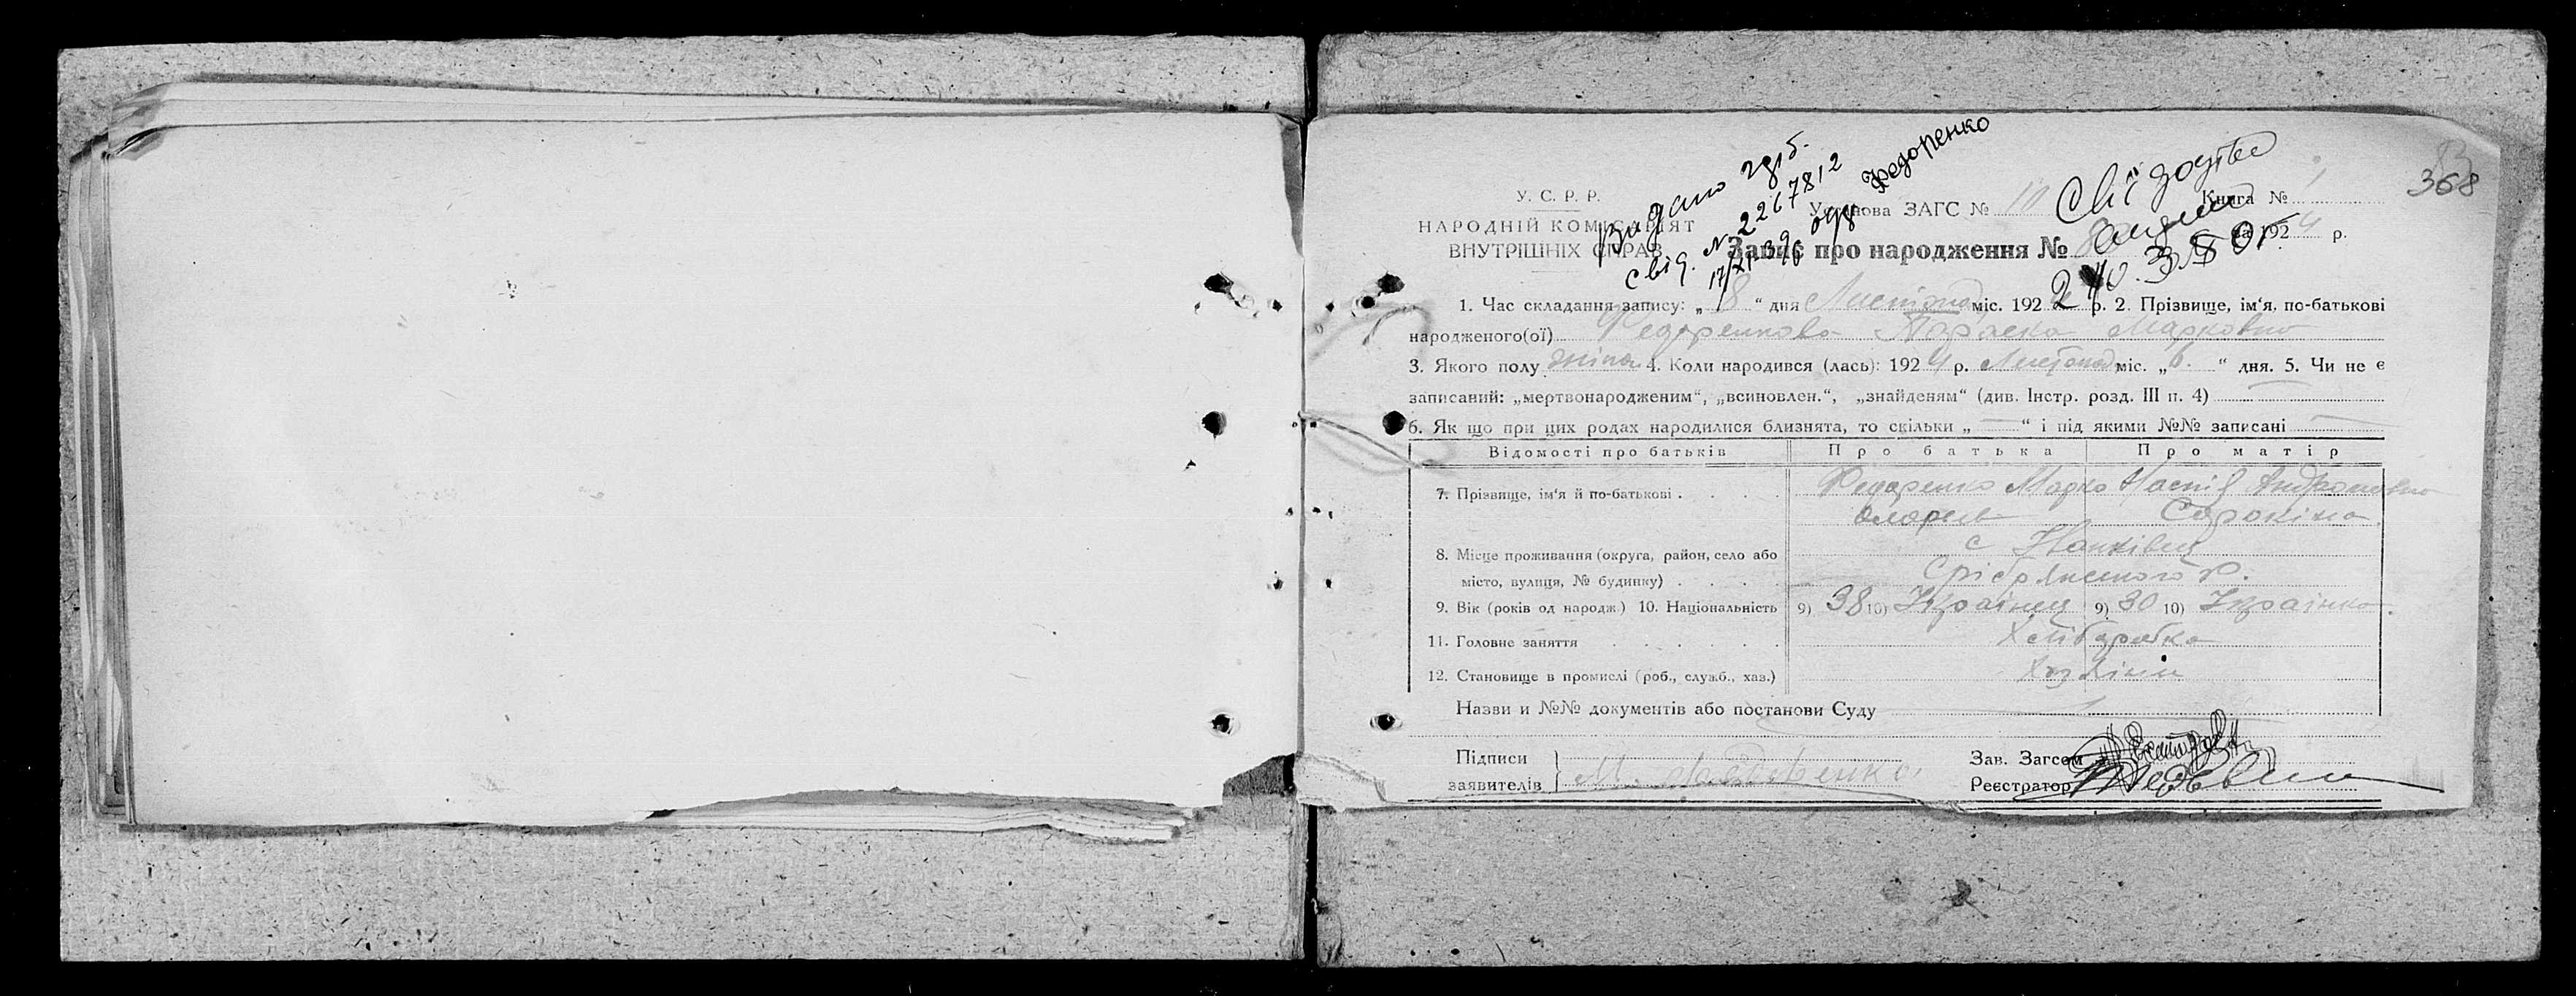 Видано
свід. № 2267812
Федоренко
368
У. С. Р. Р.
НАРОДНІЙ КОМІСАРІЯТ
ВНУТРІШНІХ СПРАВ
Установа ЗАГС № 10 Книга №
Запис про народження № за 1924 р.
1. Час складання запису: „ 8 “ дня Листопад міс. 192 р. 2. Прізвище, ім‘я, по-батькові
народженого(ої) Федоренкова Параска Марковна
3. Якого полу жіноч 4. Коли народився (лась): 1924 р. Листопад міс. „6.“ дня. 5. Чи не є
записаний: „мертвонародженим“, „всиновлен.“, „знайденям“ (див. Інстр. розд. III п. 4)
6. Як що при цих родах народилися близнята, то скільки „ — “ і під якими №№ записані —
Відомості про батьків Про батька Про матір
7. Прізвище, ім‘я й по-батькові . . . . Федоренко Марко
Сорокіна
8. Місце проживання (округа, район, село або с
місто, вулиця, № будинку) . . . . Срібрянського р.
9. Вік (років од народж.) 10. Національність 9) 38 10) Українец 9) 30 10) Українка.
11. Головне заняття . . . . . . Хліборобка
12. Становище в промислі (роб., служб., хаз.) Хозяїни
Назви и №№ документів або постанови Суду
Підписи Зав. Загсом
заявителів М. Федоренко Реєстратор